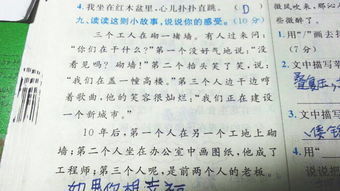 4.我坐在红木盆里,心儿扑扑直跳。 (D)
九、读读这则小故事,说说你的感受。(10分)
三个工人在砌一堵墙。有人过来问:
“你们在干什么?”第一个没好气地说:“没
看见吗?砌墙!”第二个抬头笑了笑,说:
“我们在盖一幢高楼。”第三个人边干边哼
着歌曲,他的笑容很灿烂:“我们正在建设
一个新城市。”
10年后,第一个人在另一个工地上砌
墙;第二个人坐在办公室中画图纸,他成了
工程师;第三个人呢,是前两个人的老板。
如果你想幸福
微风吹来,那沁人
些微醉了。
1.用“/”画去括
(7分)
2.文中描写
3.文中描写
4.用“
说说把